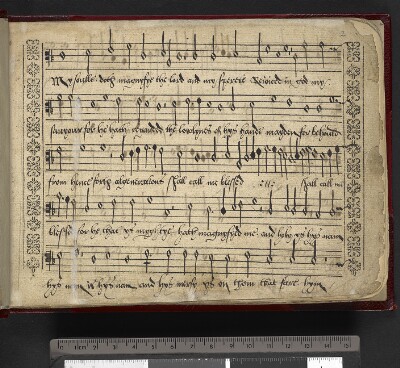 My soulle doth magnyfie the lord and my sprete Rejoiced in god my
savyour for he hath regarded the lowlynes of hys handmayden for behould
from hence forth al generations shall call me blessed :ij: shall call me
blessed for he that ys myghtye hath magnyfyed me and holy ys hys name
hys name is hys name and hys mercy ys on them that fere hym